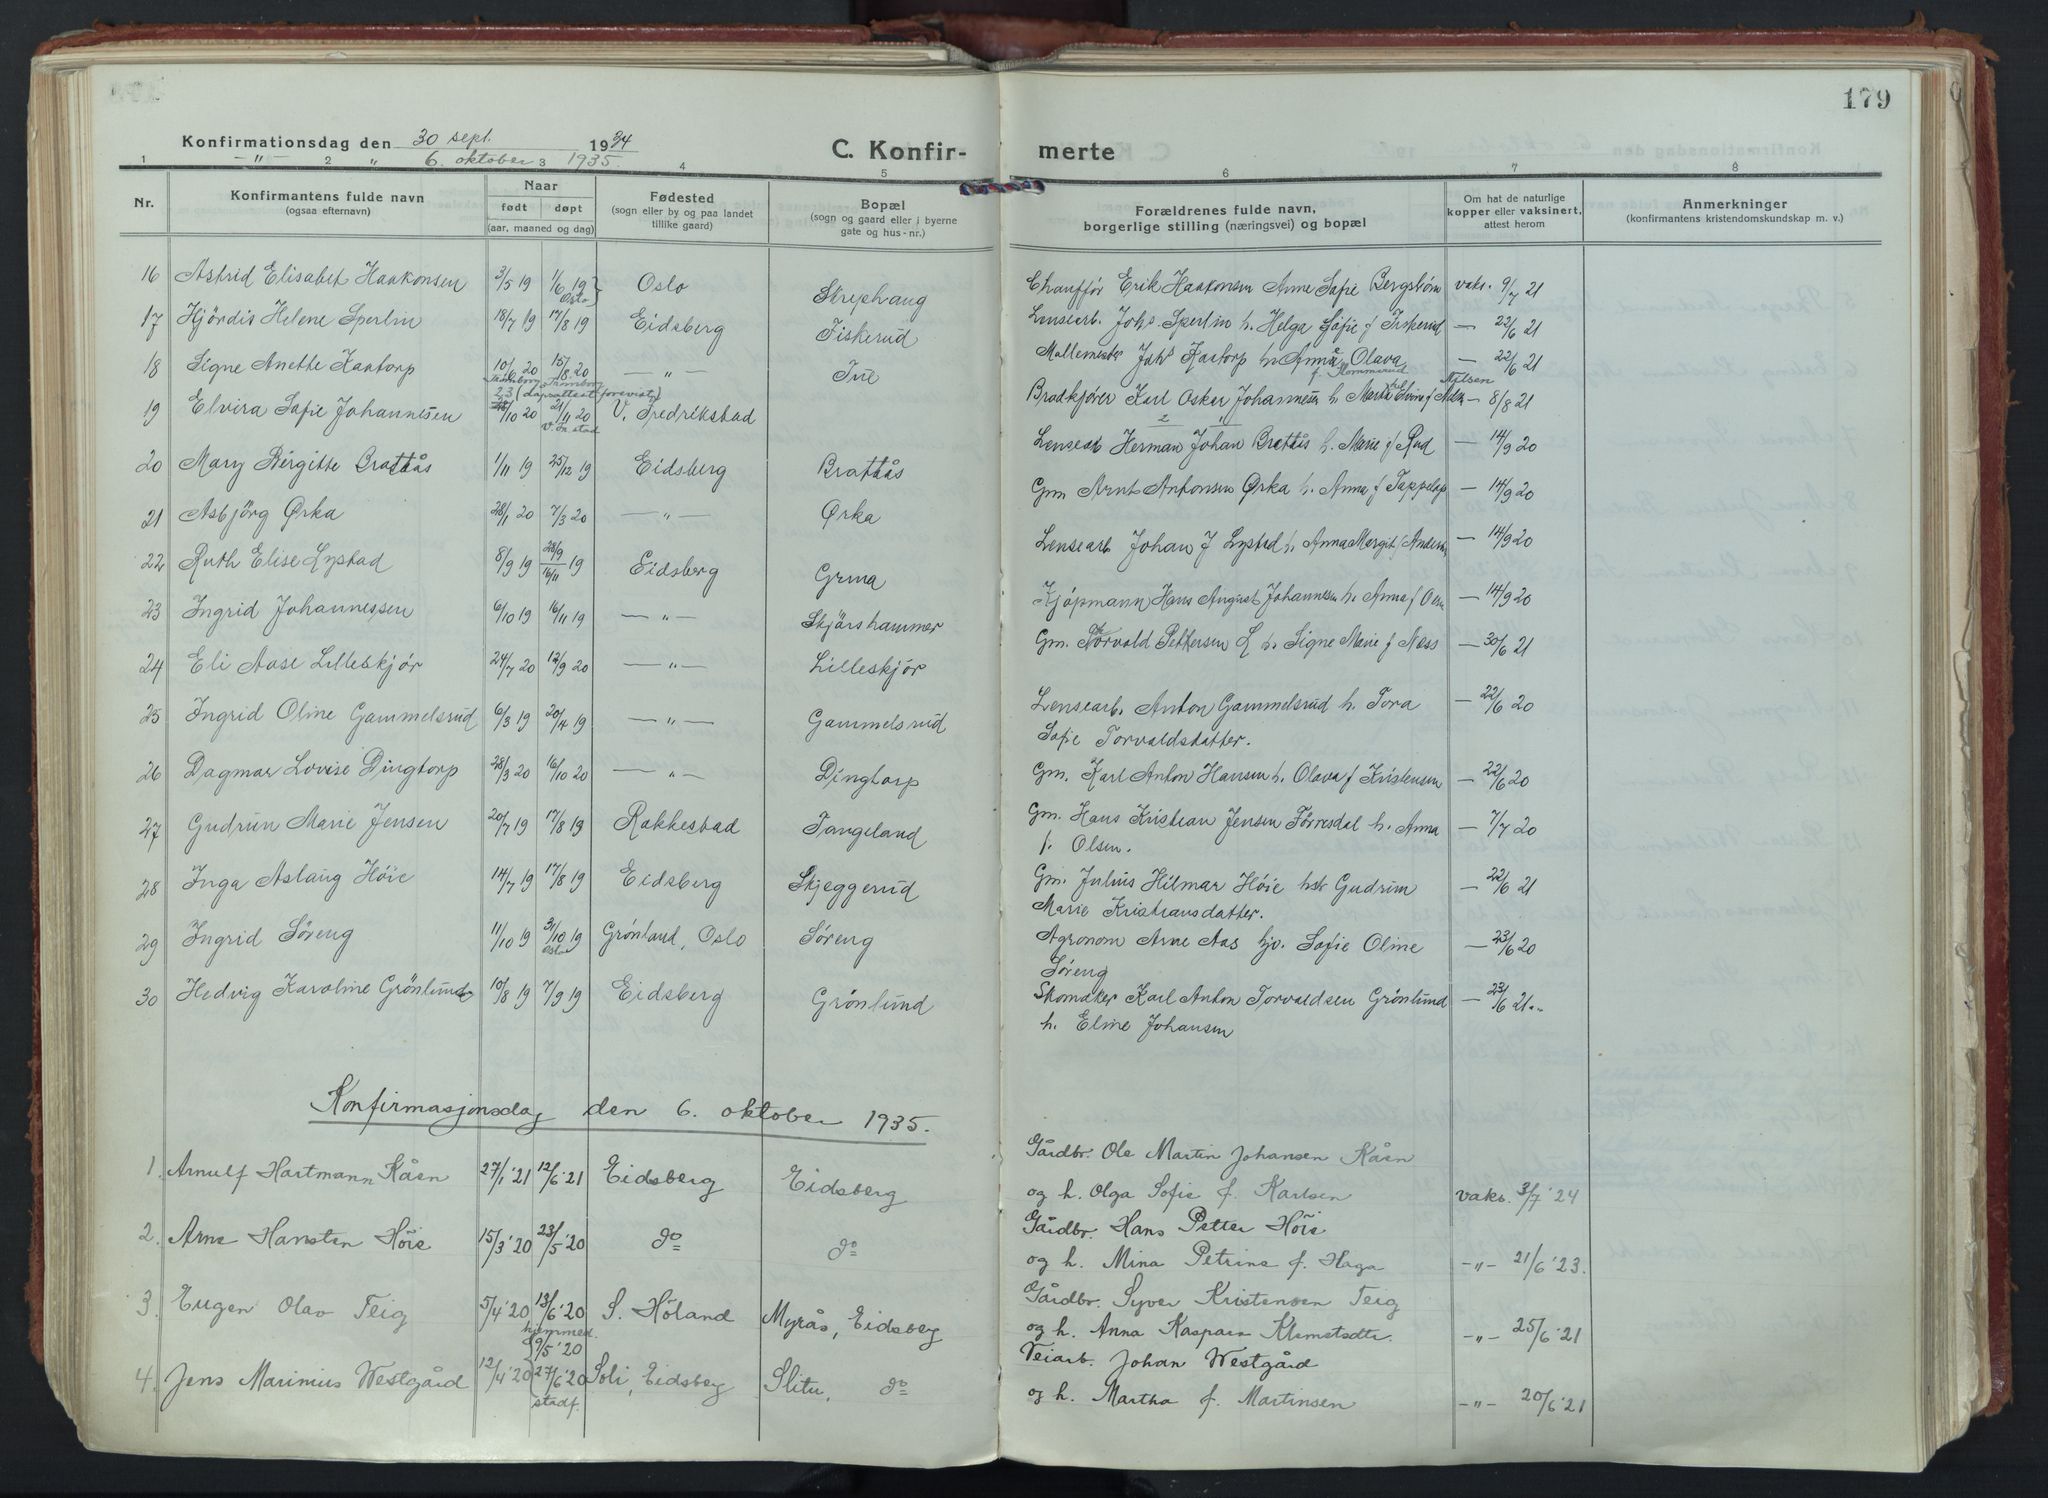 179
Konfirmationsdag den 30 sept. 1934
— " — " 6. oktober 1935.
C. Konfir- merte
1 2 3 4 5 6 7 8
Nr.
Konfirmantens fulde navn
(ogsaa efternavn)
Naar
født døpt
(aar, maaned og dag)
Fødested
(sogn eller by og paa landet
tillike gaard)
Bopæl
(sogn og gaard eller i byerne
gate og hus-nr.)
Forældrenes fulde navn,
borgerlige stilling (næringsvei) og bopæl
Om hat de naturlige
kopper eller vaksinert,
attest herom
Anmerkninger
(konfirmantens kristendomskundskap m. v.)
16 Astrid Elisabet Haakonsen 3/5 19 1/6 19 Oslo Oslo Skriphaug Chauffør Erik Haakonsen Anne Sofie Bergstøm vaks. 9/7 21
17 Hjördis Helene Sperlin 18/7 19 17/8 19 Eidsberg Fiskerud Lensearb. Johs. Sperlin h. Helga Sofie f Fiskerud — 22/6 21
18 Signe Anette Kaatorp 10/6 20 15/8 20 — " — Tue Møllemester Johs Kaatorp h. Anna Olava — 22/6 21
Trømborg Trømborg
(dåpsattest forevist)
19 Elvira Sofie Johannesen 23/10 20 21/11 20 V. Fr.stad V. Fredrikstad Brødkjører Karl Oskar Johannesen h. Marta Elvine f Nilsen — 8/8 21
20 Mary Birgitte Brattås 1/11 19 25/12 19 Eidsberg Brattås Lensearb Herman Johan Brattås h. Marie f Rud — 14/9 20
21 Asbjörg Ørka 28/1 20 7/3 20 — " — Ørka Gm. Arnt Antonsen Ørka h. Anna f — 14/9 20
22 Ruth Elise Lystad 8/9 19 28/9 16/11 19 Eidsberg Grina Lensearb Johan J Lystad h. Anna Margit f Anders — 14/9 20
23 Ingrid Johannessen 6/10 19 16/11 19 — " — Skjørshammer Kjøpmann Hans August Johannesen h. Anna f Olsen — 14/9 20
24 Eli Aase Lilleskjør 24/7 20 12/9 20 — " — Lilleskjør Gm. Torvald Pettersen L h. Signe Marie f Næss — 30/6 21
25 Ingrid Oline Gammelsrud 6/3 19 20/4 19 — " — Gammelsrud Lensearb. Anton Gammelsrud h. Tora — 22/6 20
Sofie Torvaldsdatter.
26 Dagmar Lovise Dingtorp 28/3 20 16/10 20 — " — Dingtorp Gm. Karl Anton Hansen h. Olava f Kristensen — 22/6 20
27 Gudrun Marie Jensen 20/7 19 17/8 19 Rakkestad Tangeland Gm. Hans Kristian Jensen Förresdal h. Anna — 7/7 20
f. Olsen.
28 Inga Aslaug Höie 14/7 19 17/8 19 Eidsberg Skjeggerud Gm. Julius Hilmar Höie hst Gudrun — 22/6 21
Marie Kristiansdatter.
29 Ingrid Søreng 11/10 19 31/10 19 Oslo Grønland, Oslo Søreng Agronom Arne Aas hjv. Sofie Oline — 23/6 20
Søreng
30 Hedvig Karoline Grönlund 10/8 19 7/9 19 Eidsberg Grönlund Skomaker Karl Anton Torvaldsen Grönlund — 23/6 21
h. Eline Johansen
Konfirmasjonsdag den 6. oktober 1935.
Gårdbr. Ole Martin Johansen Kåen
1. Arnulf Hartmann Kåen 27/1 '21 12/6 '21 Eidsberg Eidsberg og h. Olga Sofie f. Karlsen vaks. 3/7 '24
Gårdbr. Hans Petter Höie
2. Arne Hansten Höie 15/3 '20 23/5 '20 do do og h. Mina Petrine f. Haga — " — 21/6 '23.
Gårdbr. Syver Kristensen Teig
3. Eugen Olav Teig 5/4 '20 13/6 '20 S. Höland Myrås, Eidsberg og h. Anna Kaspara Klemetsdtr. — " — 25/6 '21
hjemmed. 9/5 '20
Veiarb. Johan Westgård
4. Jens Marinius Westgård 12/4 '20 27/6 '20 stadf. Soli, Eidsberg Slitu, do og h. Martha f. Martinsen — " — 20/6 '21